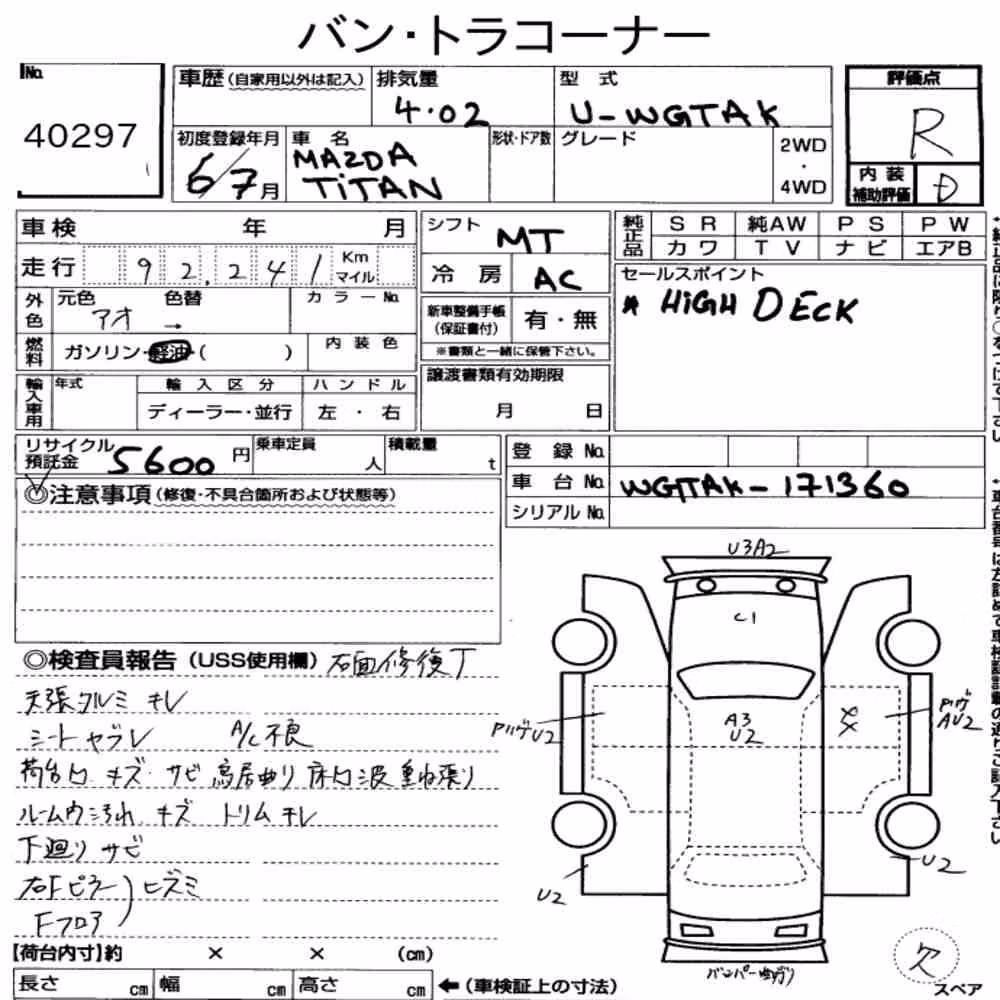 バン・トラコーナー
No.
40297
車歴(自家用以外は記入)
排気量
4.02
型 式
U-WGTAK
評価点
R
初度登録年月
6/7月
車 名
MAZDA
TITAN
形状・ドア数
グレード
2WD
・
4WD
内 装
補助評価
D
車検 年 月
走行 92,241 Km マイル
外色
元色 アオ
色替 →
カラーNo.
燃料
ガソリン・軽油・( )
内装色
輸入車用
年式
輸入区分
ディーラー・並行
ハンドル
左・右
シフト
MT
冷 房
AC
新車整備手帳
(保証書付)
有・無
※書類と一緒に保管下さい。
譲渡書類有効期限
月 日
純正品
SR 純AW PS PW
カワ TV ナビ エアB
セールスポイント
* HIGH DECK
リサイクル
預託金
5600円
乗車定員
人
積載量
t
登 録 No.
車 台 No. WGTAK-171360
シリアル No.
◎注意事項(修復・不具合箇所および状態等)
◎検査員報告(USS使用欄) 右面修復丁
天張タルミ キレ
シートヤブレ A/C不良
荷台内 キズ サビ 鳥居曲り 床内波重ね張り
ルーム内汚れ キズ トリムキレ
下廻りサビ
右Fピラー)ヒズミ
Fフロア
U3A2
C1
A3
U2
××
U2
AU2
U2
U2
バンパー曲がり
欠
スペア
【荷台内寸】約 × × (cm)
長さ cm 幅 cm 高さ cm ←(車検証上の寸法)